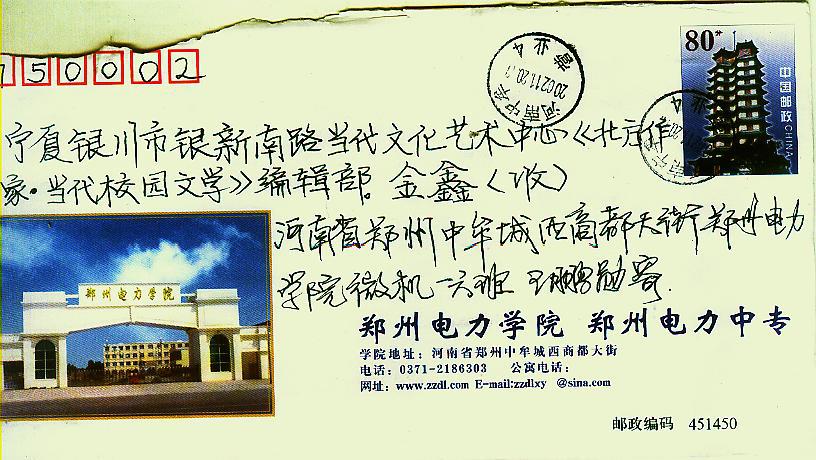 750002
80分
中国邮政 CHINA
河南中牟
2002.11.20.17
宁夏银川市银新南路当代文化艺术中心《北方作
家·当代校园文学》编辑部。金鑫（收）
河南省郑州中牟城西商都大街郑州电力
学院微机一六班 王鹏勋寄.
郑州电力学院
郑州电力学院 郑州电力中专
学院地址：河南省郑州中牟城西商都大街
电话：0371-2186303 公寓电话：
网址：www.zzdl.com E-mail:zzdlxy @sina.com
邮政编码 451450